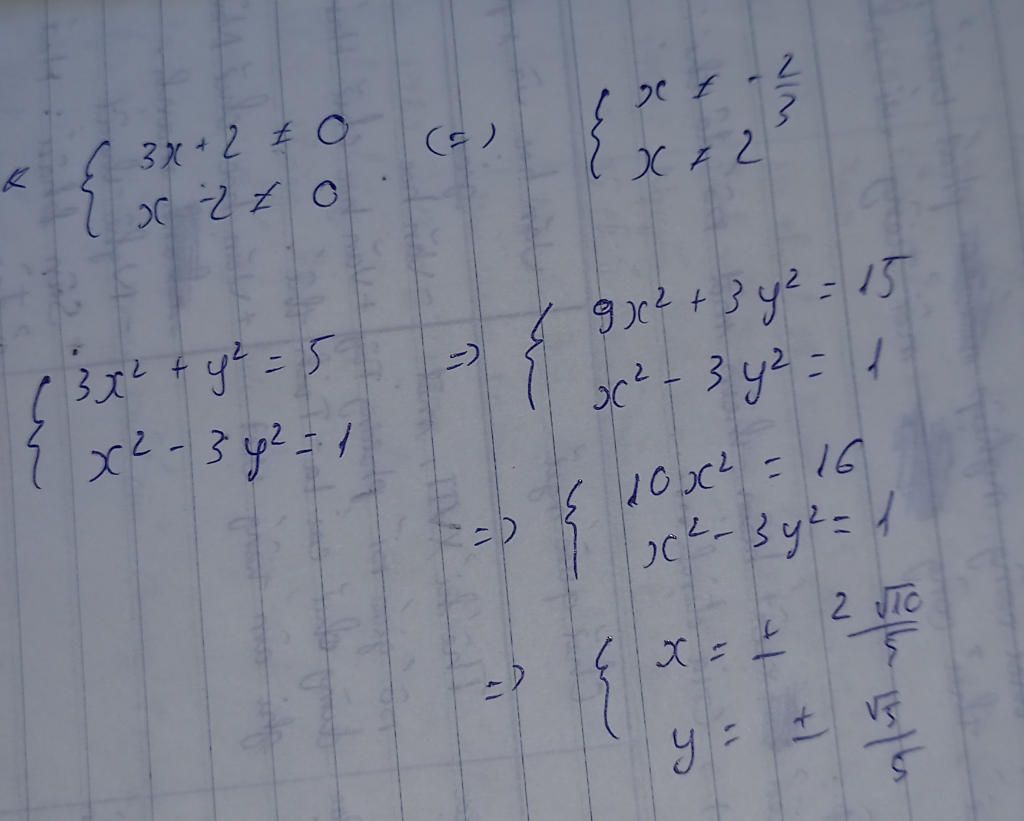 « { 3x + 2 ≠ 0 (=) { x ≠ - 2/3
x - 2 ≠ 0 x ≠ 2
{ 3x² + y² = 5 => { 9x² + 3y² = 15
x² - 3y² = 1 x² - 3y² = 1
=> { 10x² = 16
x² - 3y² = 1
=> { x = ± 2√10/5
y = ± √5/5